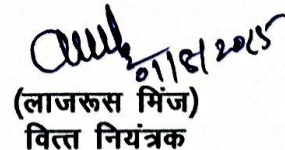 01/8/2025
(लाजरूस मिंज)
वित्त नियंत्रक